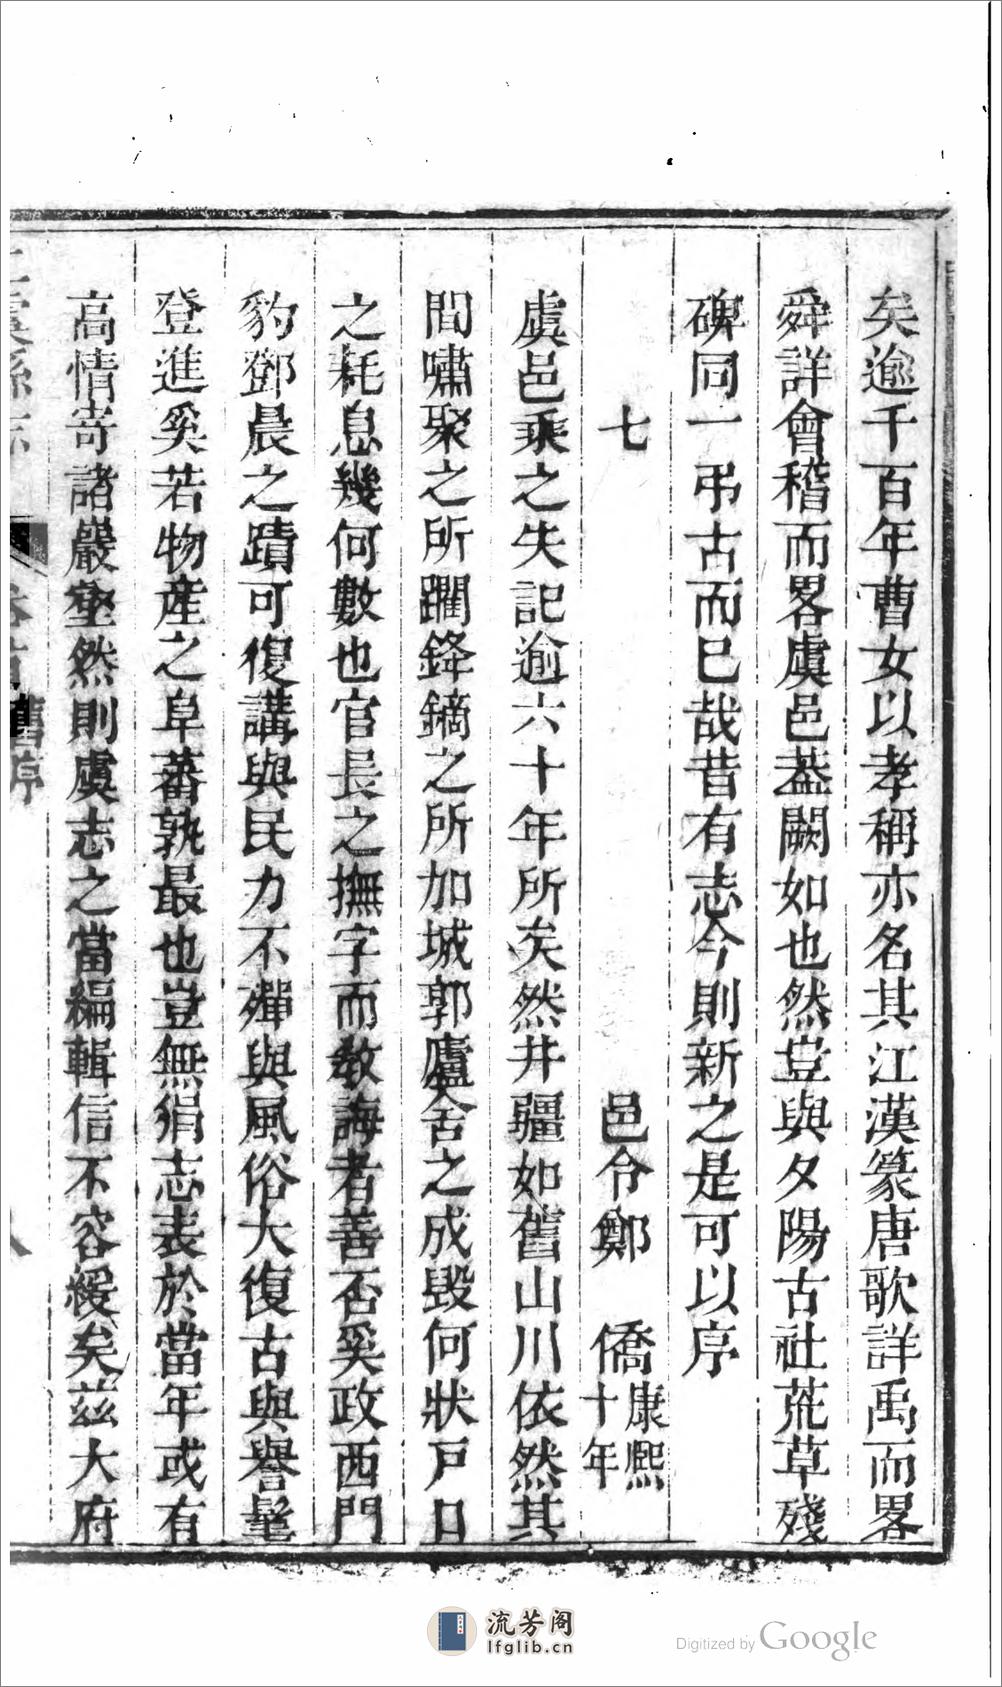 矣逾千百年曹女以孝稱亦名其江漢篆唐歌詳禹而畧
舜詳會稽而畧虞邑葢闕如也然豈與夕陽古社荒草殘
碑同一弔古而已哉昔有志今則新之是可以序
七　邑令鄭　僑康熙十年
虞邑乘之失記逾六十年所矣然井疆如舊山川依然其
間嘯聚之所躙鋒鏑之所加城郭廬舍之成毀何狀戸口
之耗息幾何數也官長之撫字而教誨者善否奚政西門
豹鄧晨之蹟可復講與民力不殫與風俗大復古與譽髦
登進奚若物產之阜蕃孰最也豈無狷志表於當年或有
高情寄諸巖壑然則虞志之當編輯信不容緩矣茲大府
舊序
流芳阁
lfglib.cn
Digitized by Google